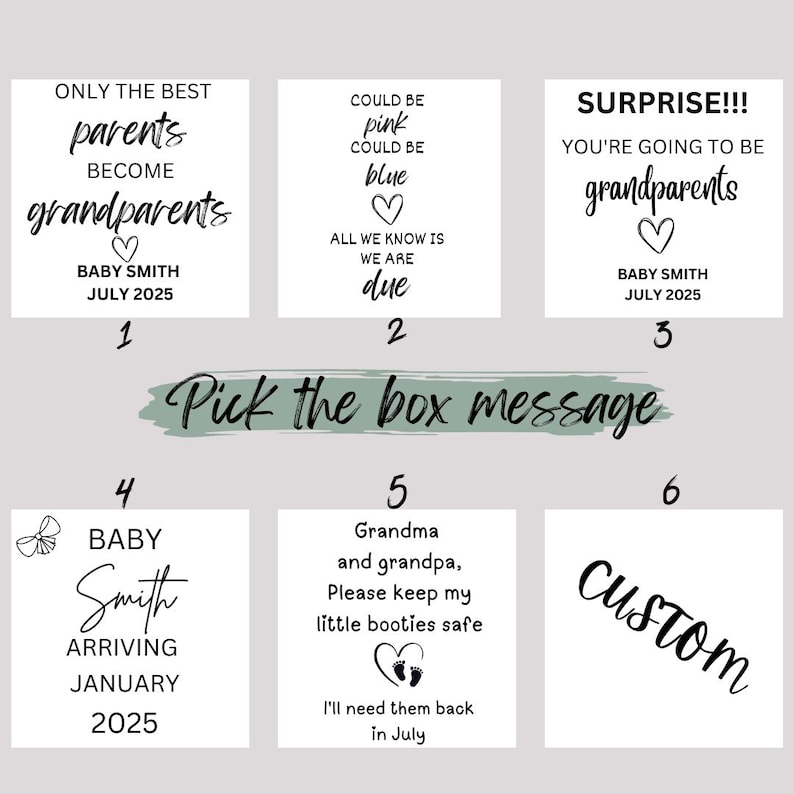 ONLY THE BEST
parents
BECOME
grandparents
BABY SMITH
JULY 2025
1
COULD BE
pink
COULD BE
blue
ALL WE KNOW IS
WE ARE
due
2
SURPRISE!!!
YOU'RE GOING TO BE
grandparents
BABY SMITH
JULY 2025
3
Pick the box message
4
BABY
Smith
ARRIVING
JANUARY
2025
5
Grandma
and grandpa,
Please keep my
little booties safe
I'll need them back
in July
6
CUSTOM